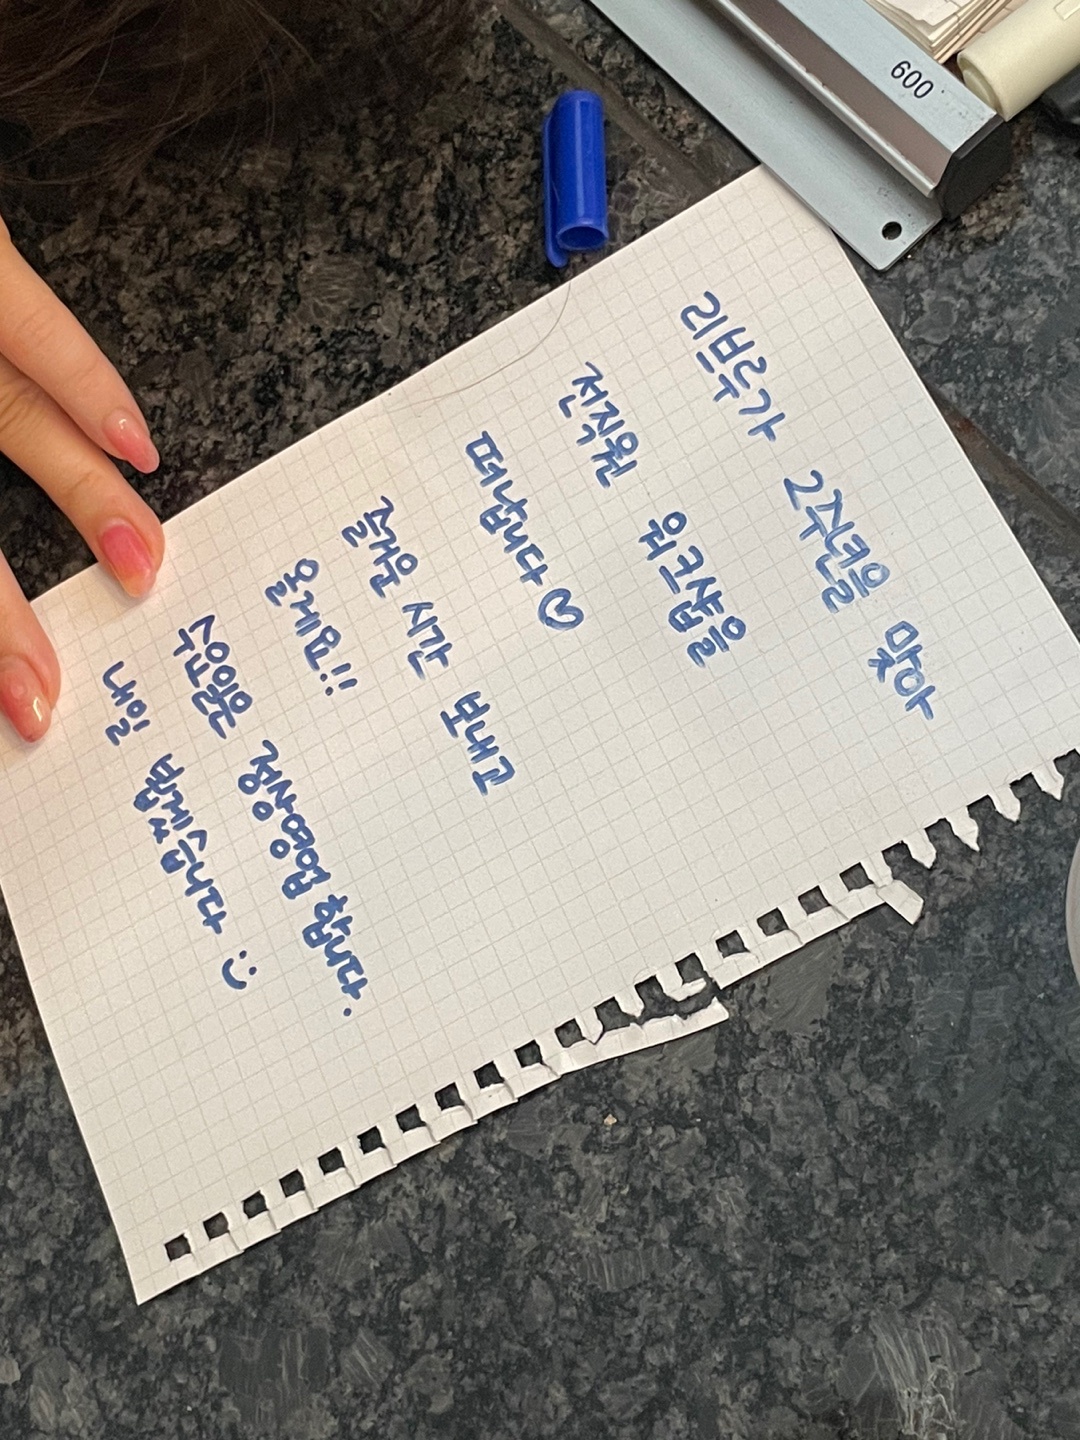 2주년을 맞아
전직원 워크샵을
떠납니다♡
즐거운 시간 보내고
올게요!!
수요일은 정상영업 합니다.
내일 뵙겠습니다 :)
600